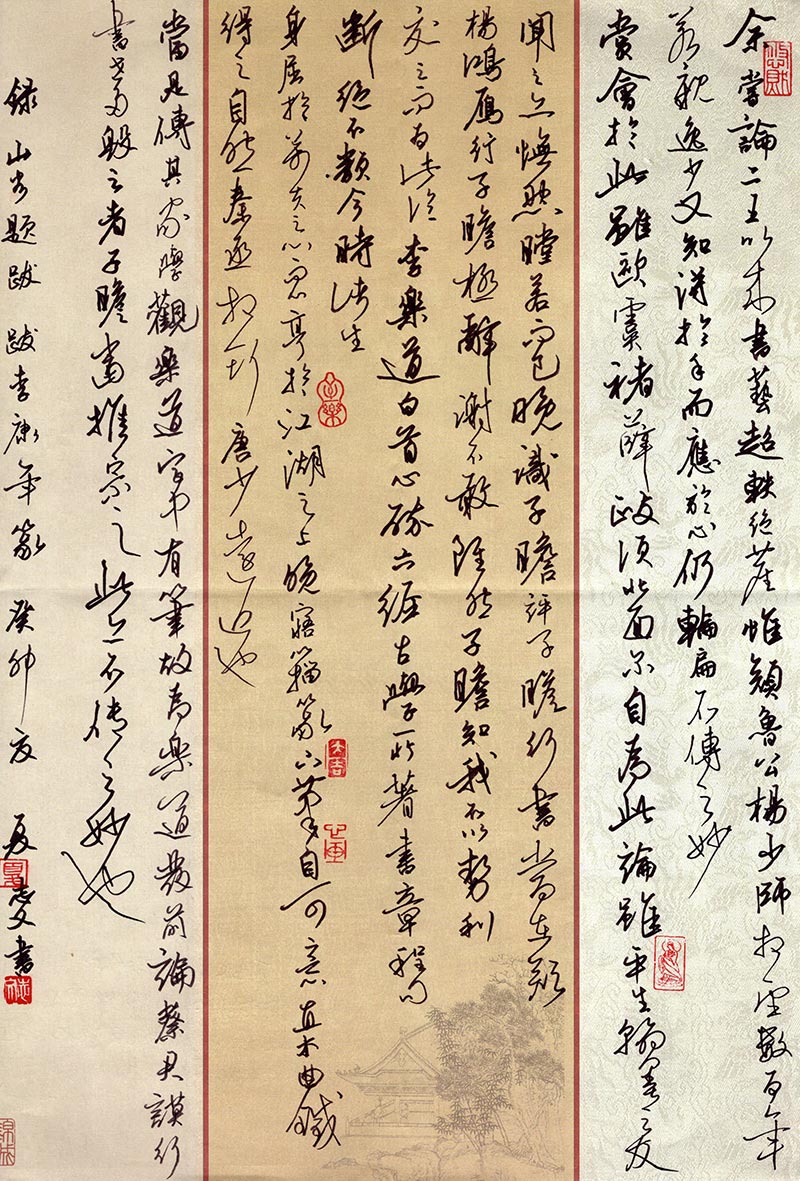 余嘗論二王以來書藝超軼絕塵惟顏魯公楊少師相望數百年
若親逸少又知得於手而應於心乃輪扁不傳之妙
賞會於此雖歐虞褚薛政須北面尔自為此論雖平生翰墨之友
聞之亦憮然瞠若而已晚識子瞻評子瞻行書當在顏
楊鴻雁行子瞻極辭謝不敢雖然子瞻知我不以勢利
交之而為此論李樂道白首心醉六經古學所著書章程句
斷絕不類今時諸生
身屈於萬夫之亨於江湖之上晚寤籀篆下筆自可意直木曲鐵
得之自然秦丞相斯唐少遠近也
當是傳其家學觀樂道字中有筆故為樂道發前論蔡君謨行
書世多毀之者子瞻嘗推崇之此亦不傳之妙也
錄山谷題跋跋李康年篆癸卯夏書